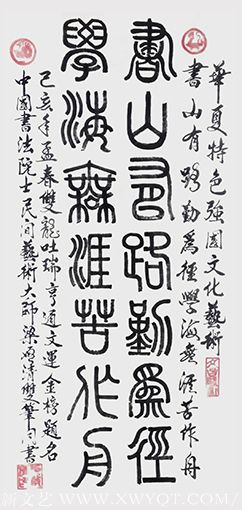 華夏特色強國文化藝術
書山有路勤為徑學海無涯苦作舟
書山有路勤為徑
學海無涯苦作舟
己亥年孟春雙龍吐瑞亨通文運金榜題名
中國書法院士民間藝術大師梁清雙筆同書
新文艺 WWW.XWYQT.COM